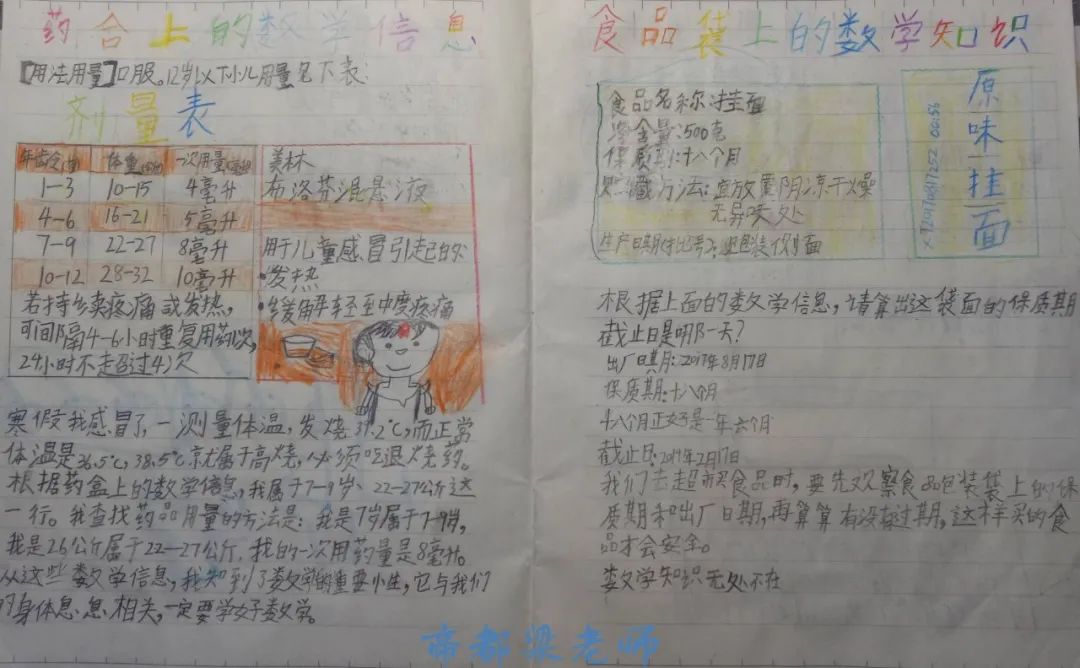 药合上的数学信息
【用法用量】口服。12岁以下小儿用量见下表:
剂量表
年龄(岁) 体重(公斤) 一次用量(毫升)
1-3 10-15 4毫升
4-6 16-21 5毫升
7-9 22-27 8毫升
10-12 28-32 10毫升
若持续疼痛或发热,
可间隔4-6小时重复用药1次,
24小时不走超过4次
美林
布洛芬混悬液
用于儿童感冒引起的
·发热
·缓解轻至中度疼痛
寒假我感冒了,一测量体温,发烧37.2℃,而正常
体温是36.5℃,38.5℃就属于高烧,必须吃退烧药。
根据药盒上的数学信息,我属于7-9岁、22-27公斤这
一行。我查找药品用量的方法是:我是7岁属于7-9岁,
我是26公斤属于22-27公斤,我的一次用药量是8毫升。
从这些数学信息,我知到了数学的重要小性,它与我们
的身体息息相关,一定要学好数学。
食品袋上的数学知识
食品名称:挂面
净含量:500克
保质期:十八个月
贮藏方法:宜放置阴凉干燥
无异味处
生产日期(批号):见包装侧面
原味挂面
X120170817252 00:56
根据上面的数学信息,请算出这袋面的保质期
截止日是哪一天?
出厂日期:2017年8月17日
保质期:十八个月
十八个月正好是一年六个月
截止日:2019年2月17日
我们去超市买食品时,要先观察食品包装袋上的保
质期和出厂日期,再算算有没有过期,这样买的食
品才会安全。
数学知识无处不在
帝都梁老师